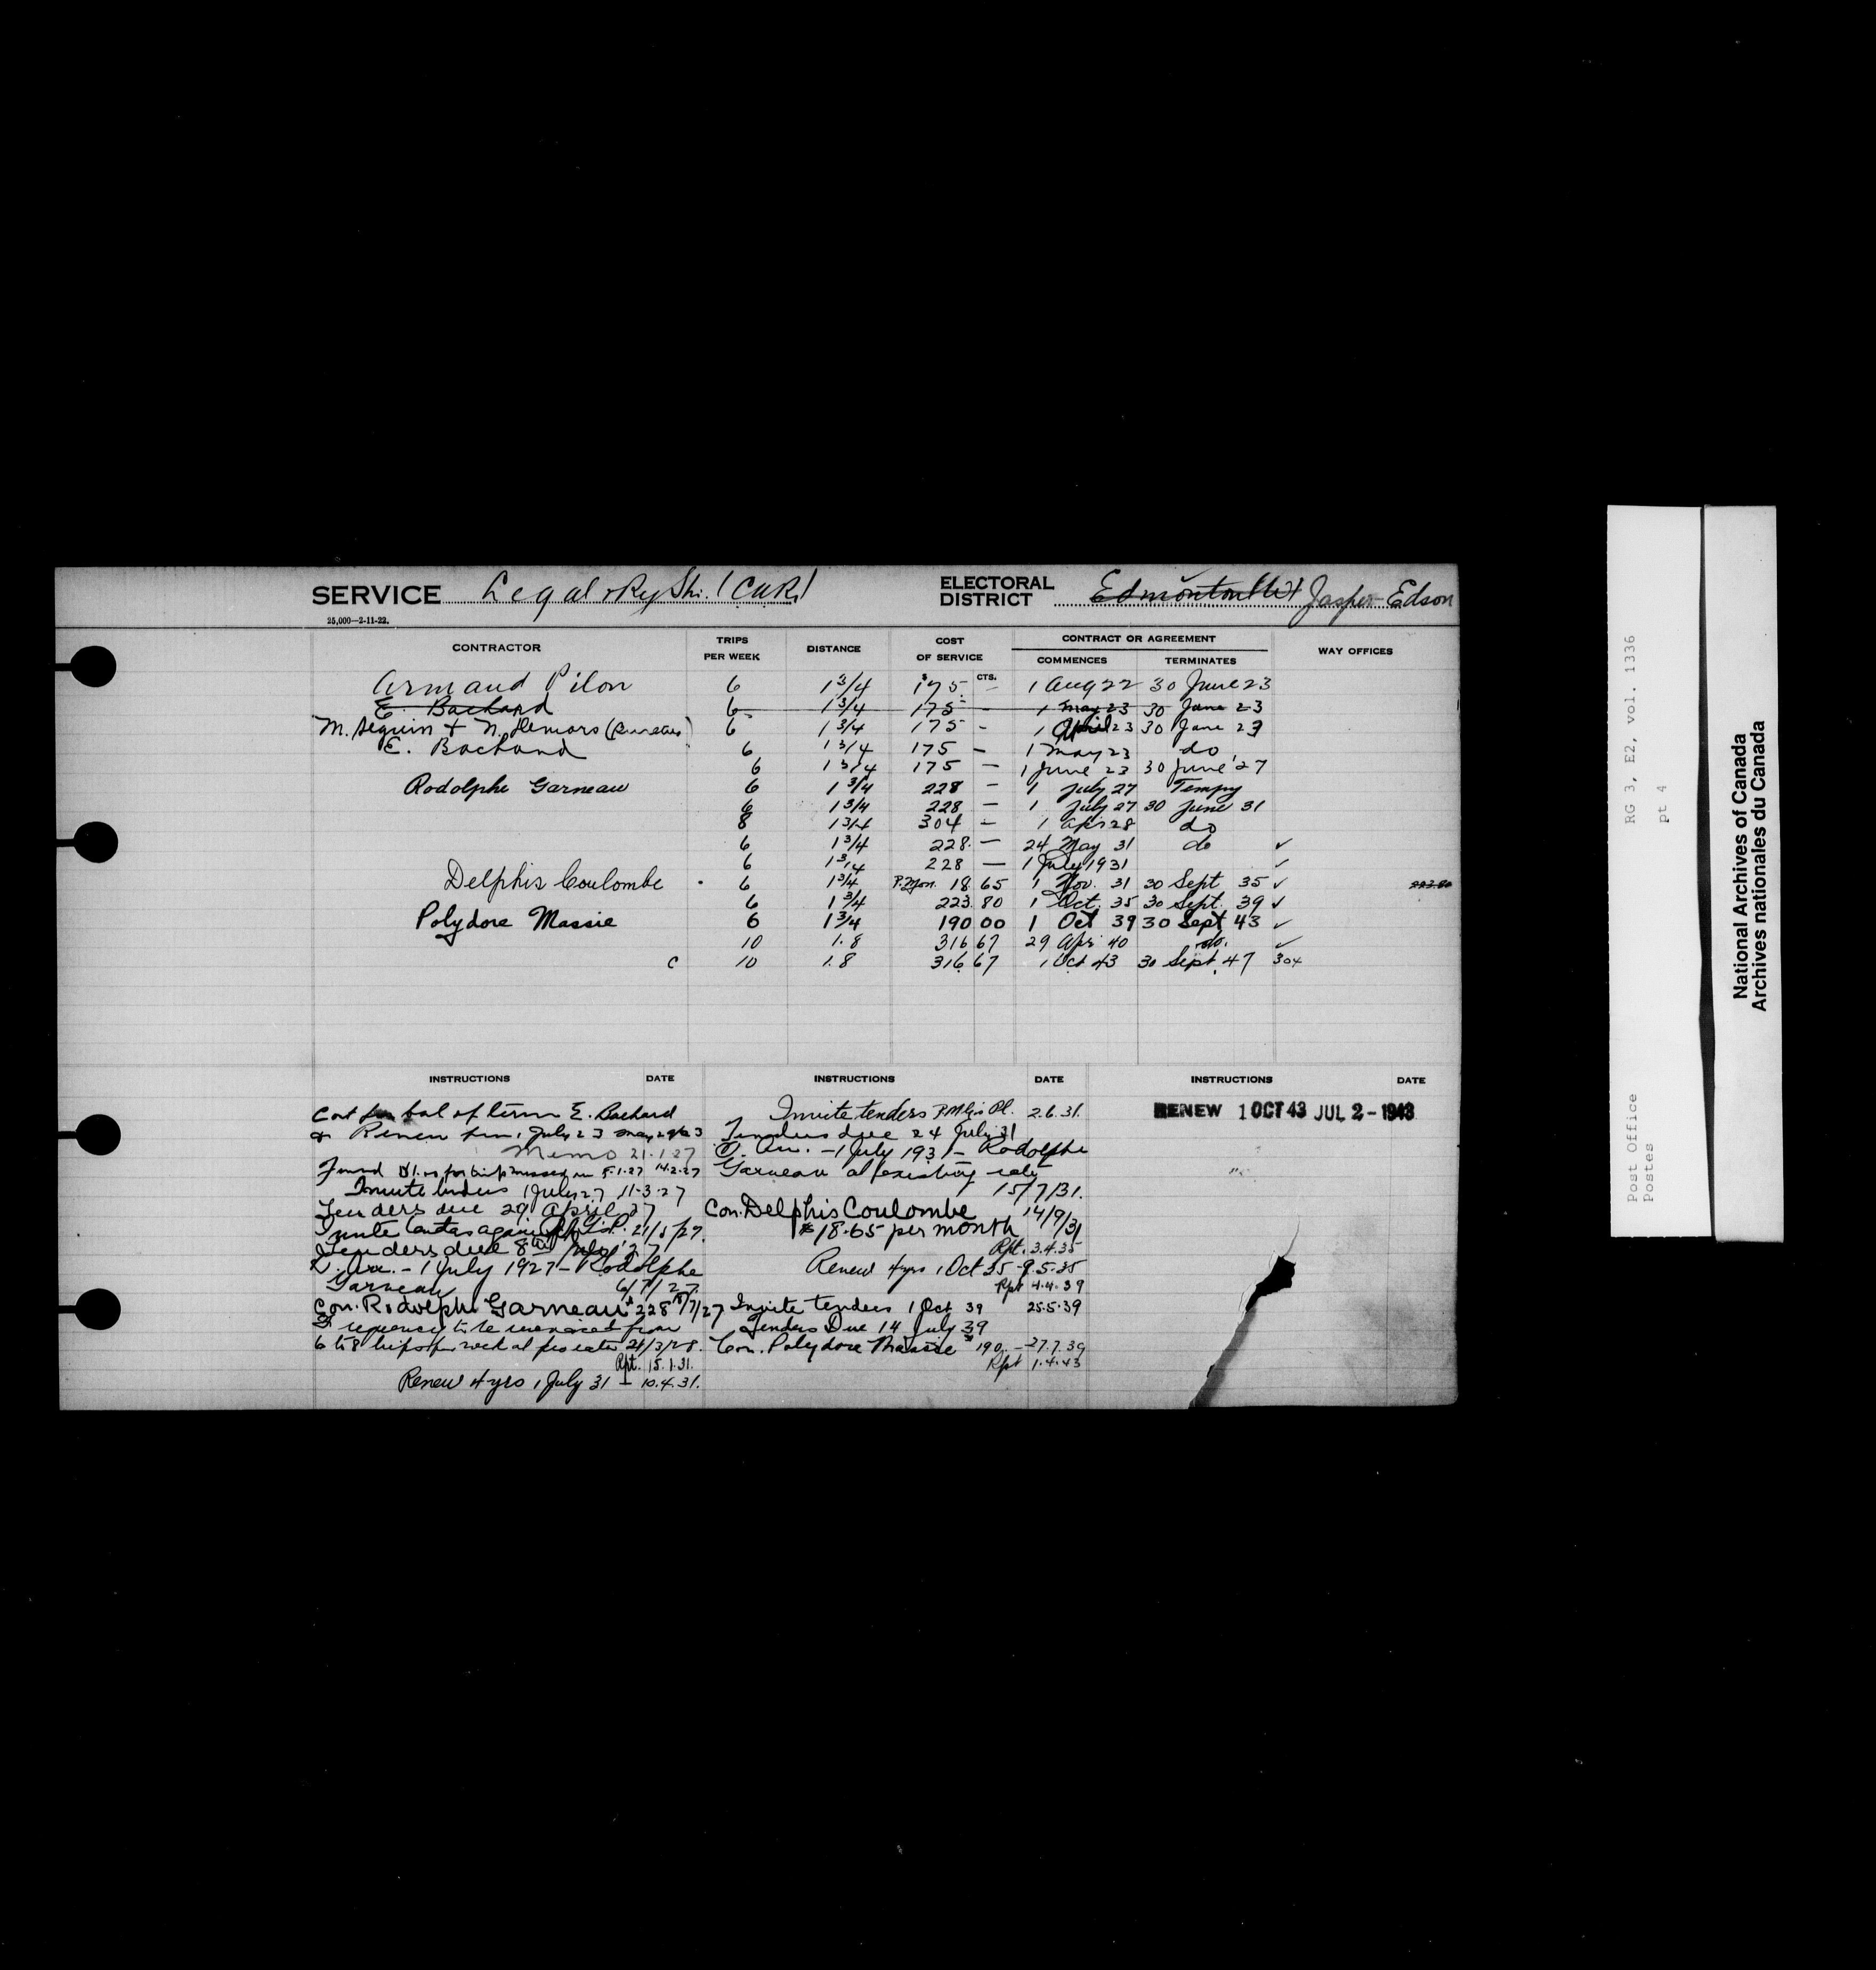 SERVICE Legal & Ry Stn. (CNR) ELECTORAL DISTRICT Edmonton West Jasper-Edson
25,000—2-11-22.
CONTRACTOR TRIPS PER WEEK DISTANCE COST OF SERVICE CONTRACT OR AGREEMENT COMMENCES TERMINATES WAY OFFICES
$ CTS.
Armand Pilon 6 1 3/4 175 – 1 Aug 22 30 June 23
E. Bachand 6 1 3/4 175 – 1 May 23 30 June 23
M. Seguin & N. Demars (Sureties) 6 1 3/4 175 – 1 April 23 30 June 23
E. Bachand 6 1 3/4 175 – 1 May 23 do
6 1 3/4 175 – 1 June 23 30 June '27
Rodolphe Garneau 6 1 3/4 228 – 1 July 27 Tempy
6 1 3/4 228 – 1 July 27 30 June 31
8 1 3/4 304 – 1 Apr 28 do
6 1 3/4 228. – 24 May 31 do ✓
6 1 3/4 228 – 1 July 1931 ✓
Delphis Coulombe 6 1 3/4 P. Mon. 18 65 1 Nov. 31 30 Sept 35 ✓ 223.80
6 1 3/4 223. 80 1 Oct. 35 30 Sept. 39 ✓
Polydore Massie 6 1 3/4 190 00 1 Oct 39 30 Sept 43 ✓
10 1.8 316 67 29 Apr 40 do. ✓
C 10 1.8 316 67 1 Oct 43 30 Sept. 47 304
INSTRUCTIONS DATE INSTRUCTIONS DATE INSTRUCTIONS DATE
Cont for bal of term E. Bachand
& Renew from 1 July 23 May 23
Memo 21.1.27
Fined $1.00 for trip missed on 5.1.27 14.2.27
Invite tenders 1 July 27 11-3-27
Tenders due 29 April 27
Invite tenders again 21/5/27.
Tenders due 8th July '27
1 July 1927 – Rodolphe
Garneau 6/7/27.
Con. Rodolph Garneau $228 /7/27
Frequency to be increased from
6 to 8 trips per week at pro rata 21/3/28.
Rpt. 15.1.31.
Renew 4 yrs 1 July 31 – 10.4.31.
Invite tenders 2.6.31.
Tenders due 24 July 31
– 1 July 1931 – Rodolphe
Garneau at existing rate
15/7/31.
Con. Delphis Coulombe 14/9/31
$18.65 per month
Rpt. 3.4.35
Renew 4 yrs 1 Oct 35 – 9.5.35
Rpt 4.4.39
Invite tenders 1 Oct 39 25.5.39
Tenders Due 14 July 39
Con. Polydore Massie $190. – 27.7.39
Rpt 1.4.43
RENEW 1 OCT 43 JUL 2 - 1943
RG 3, E2, vol. 1336
pt 4
Post Office
Postes
National Archives of Canada
Archives nationales du Canada